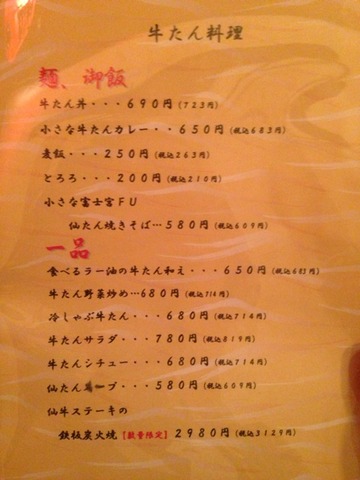 牛たん料理
麺、御飯
牛たん丼・・・690円(723円)
小さな牛たんカレー・・・650円(税込683円)
麦飯・・・250円(税込263円)
とろろ・・・200円(税込210円)
小さな富士宮FU
仙たん焼きそば…580円(税込609円)
一品
食べるラー油の牛たん和え・・・650円(税込683円)
牛たん野菜炒め…680円(税込714円)
冷しゃぶ牛たん・・・680円(税込714円)
牛たんサラダ・・・780円(税込819円)
牛たんシチュー・・・680円(税込714円)
仙たんスープ・・・580円(税込609円)
仙牛ステーキの
鉄板炭火焼【数量限定】2980円(税込3129円)